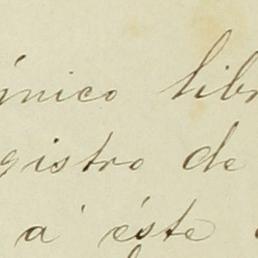 único libr
gistro de
á éste